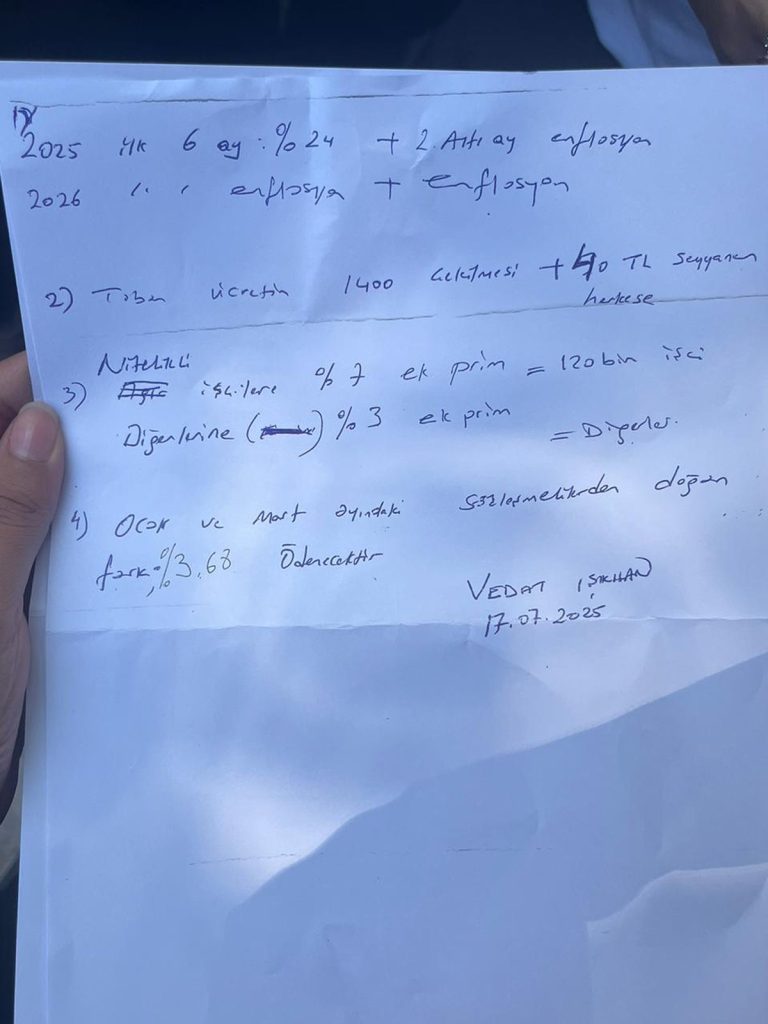 1) 2025 ilk 6 ay : %24 + 2. Altı ay enflasyon
2026 " " enflasya + enflasyon
2) Taban ücretin 1400 çekilmesi + 40 TL seyyanen
herkese
Nitelikli
3) işçilere %7 ek prim = 120 bin işçi
Diğerlerine ( ) %3 ek prim = Diğerler.
4) Ocak ve Mart ayındaki sözleşmelilerden doğan
fark %3,68 Ödenecektir
VEDAT IŞIKHAN
17.07.2025